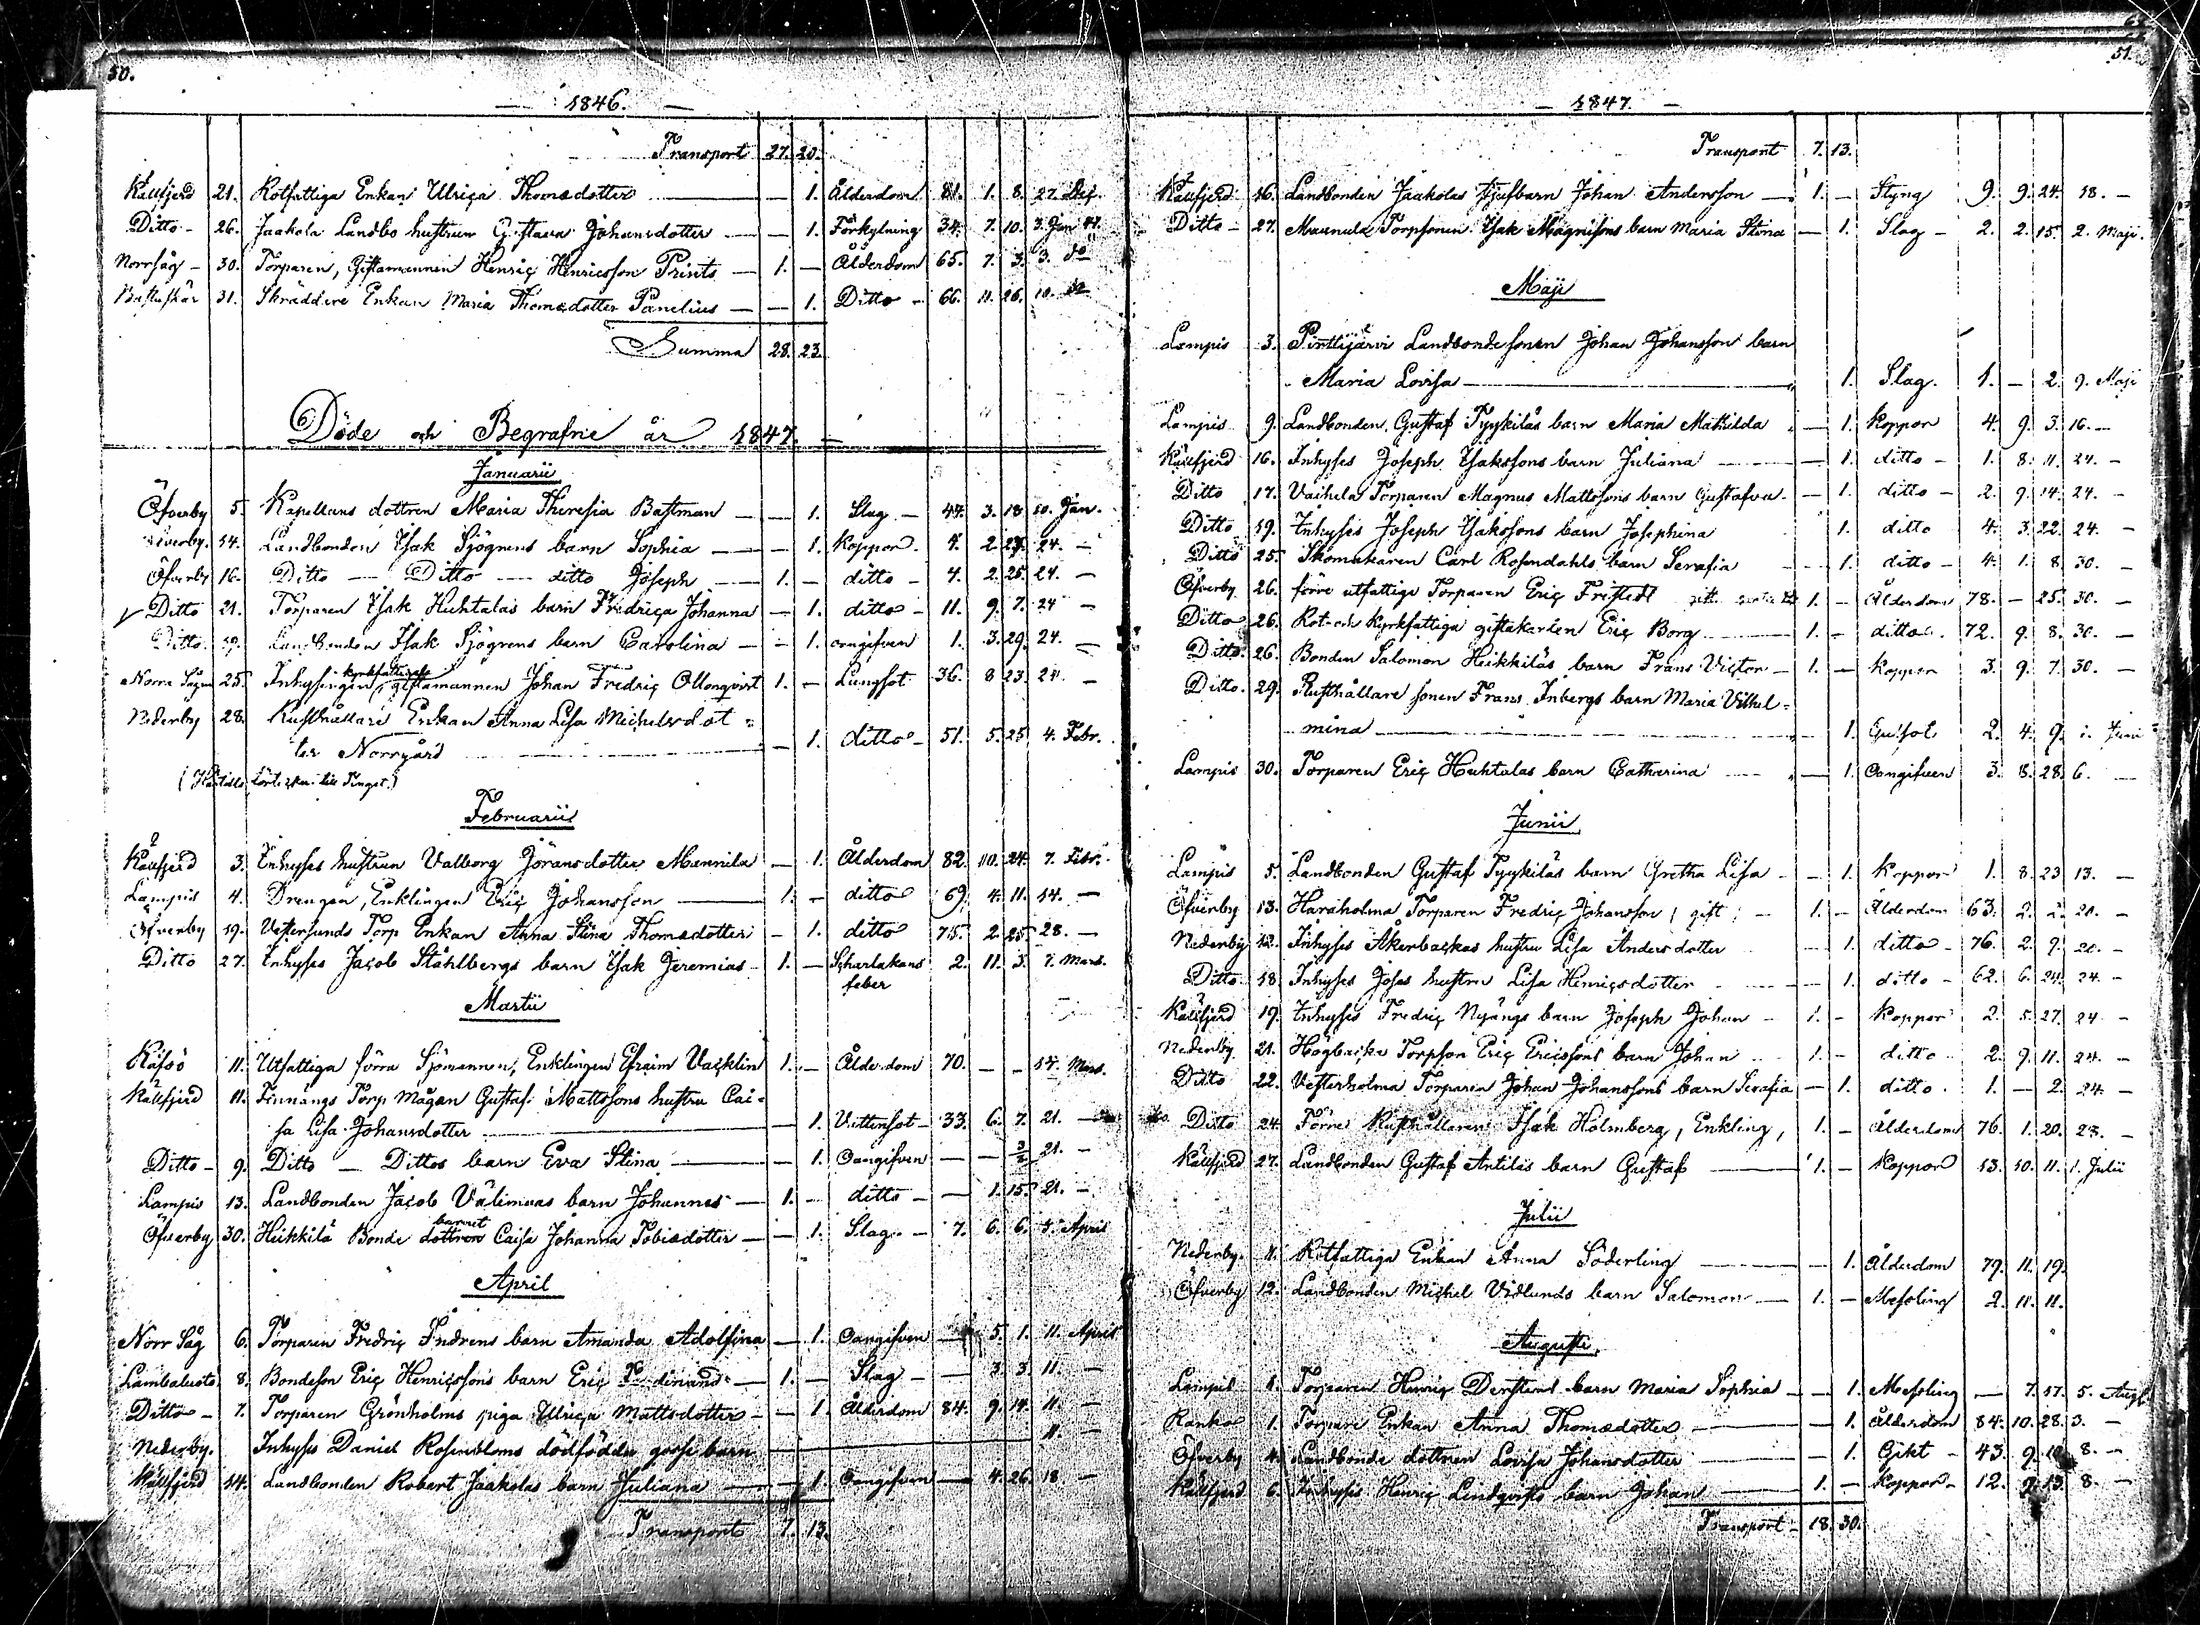 50.
1846.
Transport 27. 20.
Källfjerd 21. Rotfattiga Enkan Ulrica Thomsdotter — 1. Ålderdom 81. 1. 8. 27. Dec.
Ditto - 26. Jaakola Landbo hustrun Gustava Johansdotter — 1. Förkylning 34. 7. 10. 3. Jan 47.
Norrsåg - 30. Torparen, Giftamannen Henric Henricsson Prints — 1. — Ålderdom 65. 7. 3. 3. do
31. Skräddare Enkan Maria Thomædotter Panelius — — 1. Ditto - 66. 11. 26. 10. do
Summa 28. 23.
Döde och Begrafne år 1847. —
Januarii
Öfverby 5. Kapellans dottren Maria Theresia Bastman — — 1. Slag — 44. 3. 18 10. Jan.
Öfverby. 14. Landbonden Isak Sjögrens barn Sophia — — 1. Koppor. 4. 2. 24. —
Öfverby 16. Ditto — Ditto — ditto Joseph — 1. — ditto - 4. 2. 25. 24. —
Ditto 21. Torparen Isak Huhtalas barn Fredrica Johanna — 1. ditto - 11. 9. 7. 24 —
Ditto. 19. Landbonden Isak Sjögrens barn Carolina — — 1. oangifven 1. 3. 29. 24. —
Norra Sågen 25. Inhysingen, kyrkfattiga giftamannen Johan Fredric Ollonqvist 1. — Lungsot. 36. 8 23 24. —
Nederby 28. Rusthållare Enkan Anna Lisa Michelsdot=
ter Norrgård — — 1. ditto - 51. 5. 25 4. Febr.
Februarii
Källfjerd 3. Inhyses hustrun Valborg Jöransdotter Mannila — 1. Ålderdom 82. 10. 24. 7. Febr.
Lampis 4. Drengen, Enklingen Eric Johansson — 1. — ditto 69. 4. 11. 14. —
Öfverby 19. Vestersunds Torp Enkan Anna Stina Thomædotter — 1. ditto 75. 2. 25. 28. —
Ditto 27. Inhyses Jacob Ståhlbergs barn Isak Jeremias - 1. — Scharlakans 2. 11. 3. 7. Mars.
feber
Martii
Räfsö 11. Utfattiga förra Sjömannen, Enklingen Efraim Vacklin 1. — Ålderdom 70. — — 14. Mars.
Källfjerd 11. Finnängs Torp Mågen Gustaf Mattssons hustru Cai=
sa Lisa Johansdotter — — 1. Vattensot - 33. 6. 7. 21. —
Ditto - 9. Ditto — Dittos barn Eva Stina — — 1. Oangifven — — 21. —
Lampis 13. Landbonden Jacob Välimaas barn Johannes — 1. — ditto - — 1. 15. 21. —
Öfverby 30. Heikkilä Bonde dottren barnet Caisa Johanna Tobiædotter — — 1. Slag — 7. 6. 6. 5. April
April
Norr Såg 6. Torparen Fredric Indrens barn Amanda Adolfina — 1. Oangifven — 5. 1. 11. April
8. Bondeson Eric Henricssons barn Eric Ferdinand — 1. — Slag — — 3. 3. 11. —
Ditto - 7. Torparen Grönholms piga Ulrica Mattsdotter — — 1. Ålderdom 84. 9. 14. 11. —
Nederby. Inhyses Daniel Rosenbloms dödfödda gosse barn 11. —
Källfjerd 14. Landbonden Robert Jaakolas barn Juliana — — 1. Oangifven — 4. 26. 18 —
Transport 7. 13.
51.
1847.
Transport 7. 13.
Källfjerd 16. Landbonden Jaakolas Styfbarn Johan Andersson — 1. — Styng 9. 9. 24. 18. —
Ditto - 27. Maunula Torpsonen Isak Magnussons barn Maria Stina — 1. Slag - 2. 2. 15. 2. Maji.
Maji
Lampis 3. Pinttijärvi Landbondesonen Johan Johansson barn
Maria Lovisa — 1. Slag. 1. — 2. 9. Maji
Lampis 9. Landbonden Gustaf Tyykiläs barn Maria Mathilda — 1. Koppor 4. 9. 3. 16. —
Källfjerd 16. Inhyses Joseph Isakssons barn Juliana — 1. ditto - 1. 8. 11. 24. —
Ditto 17. Torparen Magnus Mattssons barn Gustafva - — 1. ditto - 2. 9. 14. 24. —
Ditto 19. Inhyses Joseph Isakssons barn Josephina 1. ditto 4. 3. 22. 24. —
Ditto 25. Skomakaren Carl Rosendahls barn Serafia 1. ditto - 4. 1. 8. 30. —
Öfverby 26. förre utfattiga Torparen Eric Fristedt 1. — Ålderdom 78. — 25. 30. —
Ditto 26. Rot- och Kyrkfattiga giftakarlen Eric Borg 1. — ditto. 72. 9. 8. 30. —
Ditto. 26. Bonden Salomon Heikkiläs barn Frans Victor — 1. — Koppor 3. 9. 7. 30. —
Ditto. 29. Rusthållare sonen Frans Inbergs barn Maria Vilhel=
mina — 1. 2. 4. 9. Junii
Lampis 30. Torparen Eric Huhtalas barn Catharina — 1. Oangifven 3. 8. 28. 6. —
Junii
Lampis 5. Landbonden Gustaf Tyykiläs barn Gretha Lisa — 1. Koppor 1. 8. 23 13. —
Öfverby 13. Haraholma Torparen Fredric Johansson, gift, — 1. — Ålderdom 63. 2. 2. 20. —
Nederby 12. Inhyses Åkerbackas hustru Lisa Andersdotter 1. ditto - 76. 2. 9. 20. —
Ditto 18. Inhyses Josas hustru Lisa Henricsdotter 1. ditto - 62. 6. 24. 24. —
Källfjerd 19. Inhyses Fredric Nyängs barn Joseph Johan — 1. — Koppor 2. 5. 27. 24 —
Nederby 21. Högbacka Torpson Eric Ericssons barn Johan 1. — ditto 2. 9. 11. 24. —
Ditto 22. Vesterholma Torparen Johan Johanssons barn Serafia — 1. ditto. 1. — 2. 24. —
Ditto 24. Förre Rusthållaren Isak Holmberg, Enkling, 1. — Ålderdom 76. 1. 20. 28. —
Källfjerd 27. Landbonden Gustaf Antilas barn Gustaf — 1. — Koppor 13. 10. 11. 1. Julii
Julii
Nederby. Rotfattiga Enkan Anna Söderling — — 1. Ålderdom 79. 11. 19.
Öfverby 12. Landbonden Michel Vidlunds barn Salomon — 1. — Messling 2. 11. 11.
Augusti
Lampis 1. Torparen Henric barn Maria Sophia — — 1. Messling — 7. 17. 5. Aug.
Ranka 1. Torpare Enkan Anna Thomædotter — — 1. Ålderdom 84. 10. 28. 3. —
Öfverby 4. Landbonde dottren Lovisa Johansdotter — 1. Gikt - 43. 9. 8. —
Källfjerd 6. Inhyses Henric Lindqvists barn Johan — 1. — Koppor - 12. 9. 13. 8. —
Transport - 18. 30.